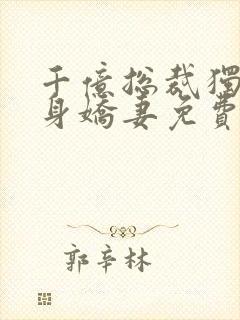 千億總裁獨
身嬌妻免費
郭辛林